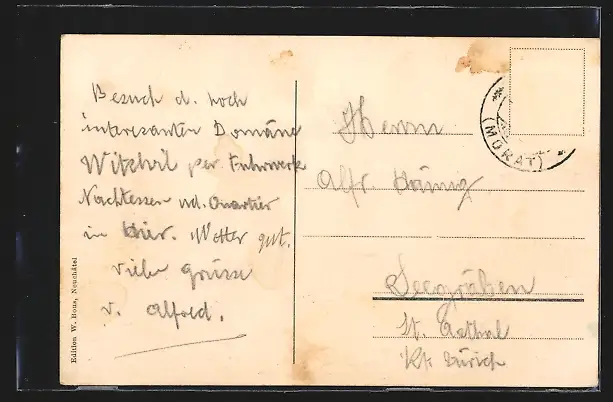 Besuch d. hoch
interesanten Domäne
Witzwil per Fuhrwerk
Nachtessen ud. Quartier
in hier. Wetter gut.
viele grüsse
v. Alfred.
Edition W. Bous, Neuchâtel
(MORAT)
Herrn
Alfr.
Seegräben
St. Aathal
Kt. Zürich